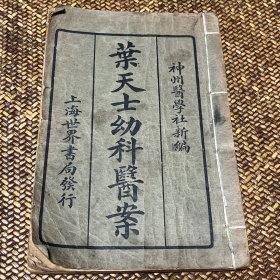 神州醫學社新編
葉天士幼科醫案
上海世界书局發行